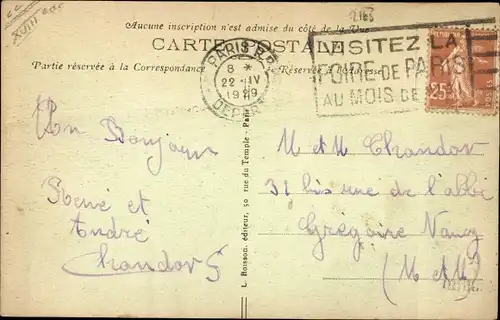 2168
XVIII
Aucune inscription n'est admise du côté de la Vue
CARTE POSTALE
Partie réservée à la Correspondance
Réservée à l'Adresse
PARIS R.P.
8 *
22 IV
1929
DEPART
VISITEZ LA
FOIRE DE PARIS
AU MOIS DE
25c
Un Bonjour
René et
André
Chandor
M et M Chandor
31 bis rue de l'abbé
Grégoire Nancy
(M et M)
L. Boisson, éditeur, 50 rue du Temple - Paris